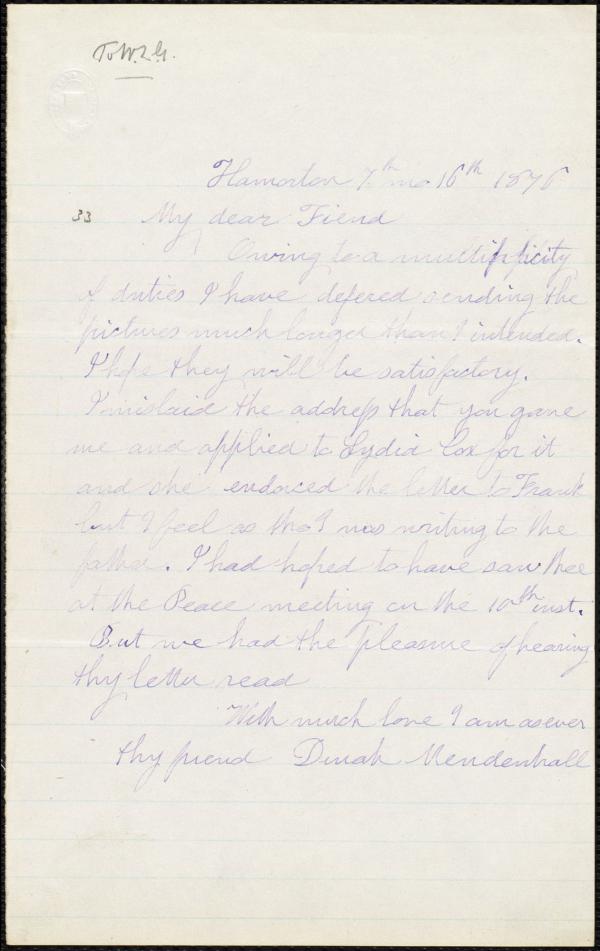 To W.L.G.
Hamorton 7th mo 16th 1876
33 My dear Fiend
Owing to a multiplicity
of duties I have defered sending the
pictures much longer than I intended.
I hope they will be satisfactory.
I mislaid the address that you gave
me and applied to Lydia Cox for it
and she endorced the letter to Frank
but I feel as tho I was writing to the
father. I had hoped to have saw thee
at the Peace meeting on the 10th inst.
But we had the pleasure of hearing
thy letter read
With much love I am as ever
thy friend Dinah Mendenhall